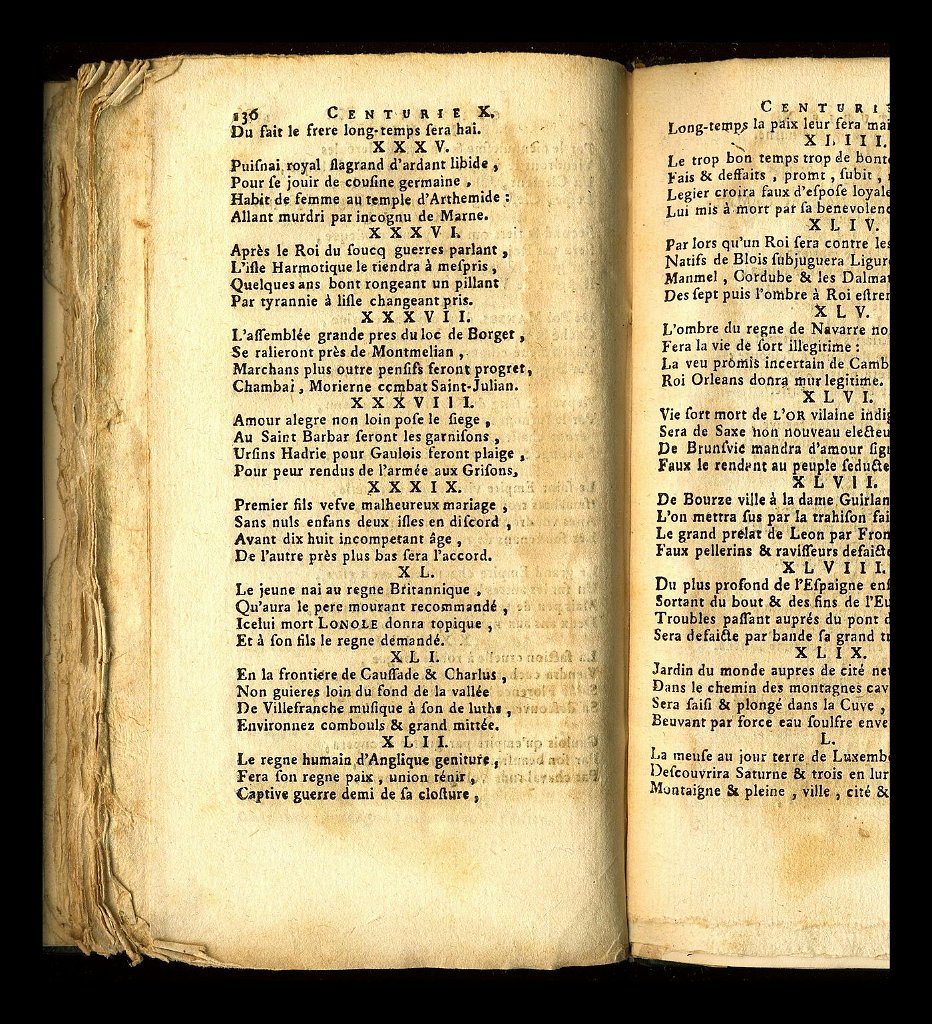 136 CENTURIE X.
Du fait le frere long-temps ſera hai.
XXXV.
Puiſnai royal flagrand d'ardant libide ,
Pour ſe jouir de couſine germaine ,
Habit de femme au temple d'Arthemide :
Allant murdri par incognu de Marne.
XXXVI.
Après le Roi du ſoucq guerres parlant ,
L'iſle Harmotique le tiendra à meſpris ,
Quelques ans bont rongeant un pillant
Par tyrannie à liſle changeant pris.
XXXVII.
L'aſſemblée grande pres du loc de Borget ,
Se ralieront près de Montmelian ,
Marchans plus outre penſifs feront progret,
Chambai , Morierne combat Saint-Julian.
XXXVIII.
Amour alegre non loin poſe le ſiege ,
Au Saint Barbar ſeront les garniſons ,
Urſins Hadrie pour Gaulois feront plaige ,
Pour peur rendus de l'armée aux Griſons,
XXXIX.
Premier fils veſve malheureux mariage ,
Sans nuls enfans deux iſles en diſcord ,
Avant dix huit incompetant âge ,
De l'autre près plus bas ſera l'accord.
XL.
Le jeune nai au regne Britannique ,
Qu'aura le pere mourant recommandé ,
Icelui mort LONOLE donra topique ,
Et à ſon fils le regne demandé.
XLI.
En la frontiere de Cauſſade & Charlus ,
Non guieres loin du fond de la vallée
De Villefranche muſique à ſon de luths ,
Environnez combouls & grand mittée.
XLII.
Le regne humain d'Anglique geniture ,
Fera ſon regne paix , union ténir ,
Captive guerre demi de ſa cloſture ,
CENTURIE
Long-temps la paix leur fera mai
XLIII.
Le trop bon temps trop de bont
Fais & deffaits , promt , ſubit ,
Legier croira faux d'eſpoſe loyale
Lui mis à mort par ſa benevolenc
XLIV.
Par lors qu'un Roi ſera contre les
Natifs de Blois ſubjuguera Ligur
Manmel , Cordube & les Dalmat
Des ſept puis l'ombre à Roi eſtren
XLV.
L'ombre du regne de Navarre no
Fera la vie de ſort illegitime :
La veu promis incertain de Camb
Roi Orleans donra mur legitime.
XLVI.
Vie ſort mort de L'OR vilaine indig
Sera de Saxe non nouveau electeu
De Brunſvic mandra d'amour ſig
Faux le rendant au peuple ſeducte
XLVII.
De Bourze ville à la dame Guirlan
L'on mettra ſus par la trahiſon fai
Le grand prelat de Leon par From
Faux pellerins & raviſſeurs defaicte
XLVIII.
Du plus profond de l'Eſpaigne enſ
Sortant du bout & des fins de l'Eu
Troubles paſſant auprés du pont d
Sera defaicte par bande ſa grand tr
XLIX.
Jardin du monde aupres de cité neu
Dans le chemin des montagnes cav
Sera ſaiſi & plongé dans la Cuve ,
Beuvant par force eau ſoulfre enve
L.
La meuſe au jour terre de Luxemb
Deſcouvrira Saturne & trois en lur
Montaigne & pleine , ville , cité &